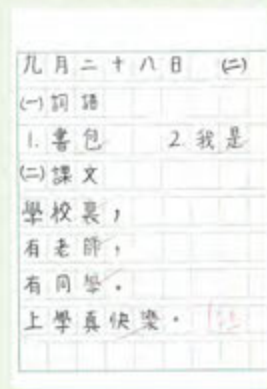 九月二十八日 (二)
(一)詞語
1. 書包 2. 我是
(二)課文
學校裏，
有老師，
有同學。
上學真快樂。